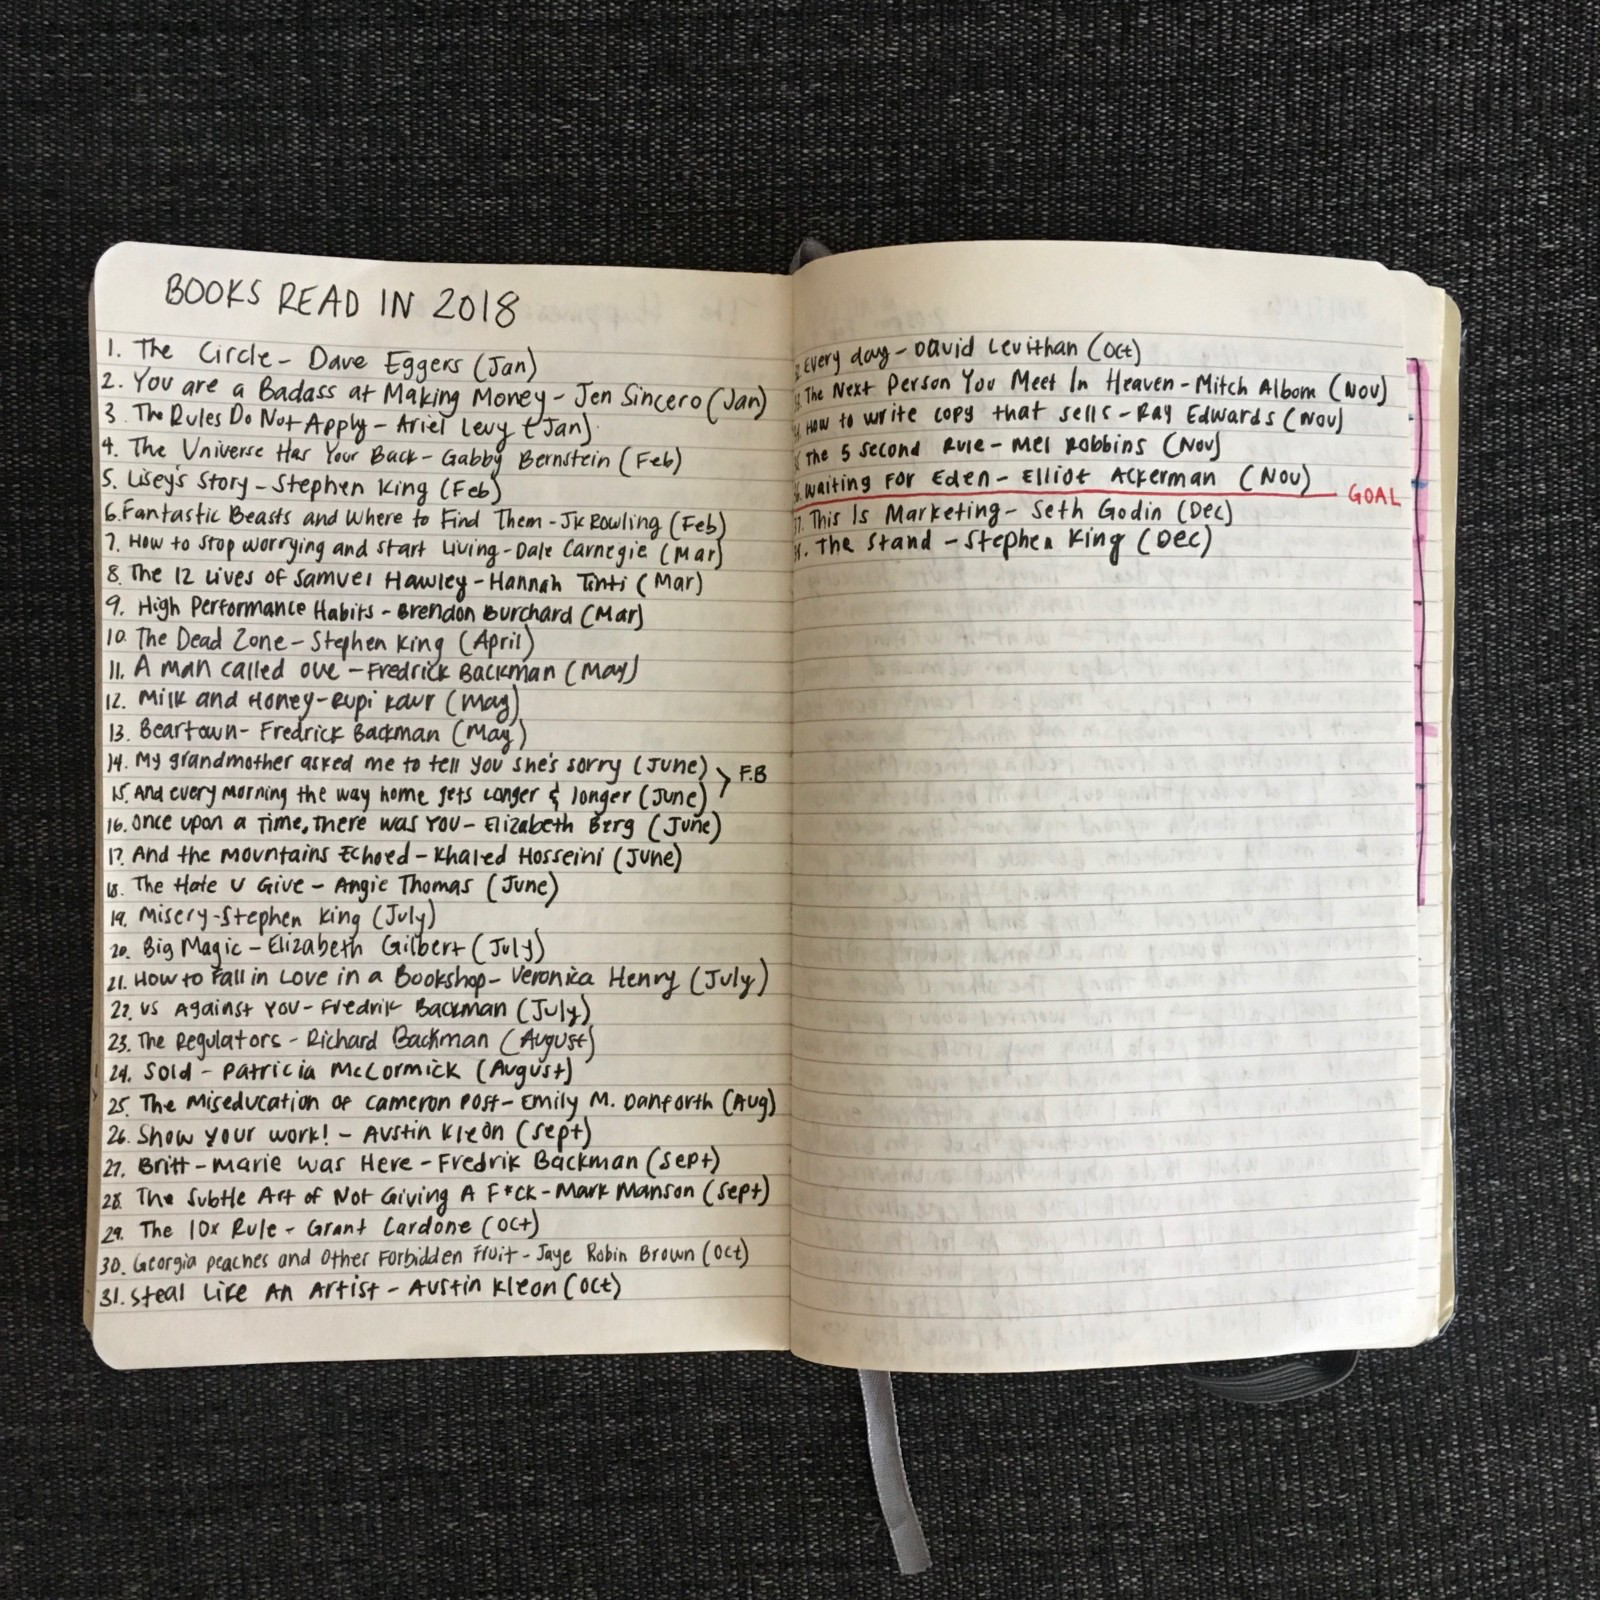 BOOKS READ IN 2018
1. The Circle - Dave Eggers (Jan)
2. You are a Badass at Making Money - Jen Sincero (Jan)
3. The Rules Do Not Apply - Ariel Levy (Jan)
4. The Universe Has Your Back - Gabby Bernstein (Feb)
5. Lisey's Story - Stephen King (Feb)
6. Fantastic Beasts and Where to Find Them - JK Rowling (Feb)
7. How to stop worrying and start Living - Dale Carnegie (Mar)
8. The 12 Lives of Samuel Hawley - Hannah Tinti (Mar)
9. High Performance Habits - Brendon Burchard (Mar)
10. The Dead Zone - Stephen King (April)
11. A man called ove - Fredrick Backman (May)
12. Milk and Honey - Rupi Kaur (May)
13. Beartown - Fredrick Backman (May)
14. My grandmother asked me to tell you she's sorry (June)
15. And every morning the way home gets longer & longer (June)
> F.B
16. Once upon a Time, There was You - Elizabeth Berg (June)
17. And the Mountains Echoed - Khaled Hosseini (June)
18. The Hate U Give - Angie Thomas (June)
19. Misery - Stephen King (July)
20. Big Magic - Elizabeth Gilbert (July)
21. How to Fall in Love in a Bookshop - Veronica Henry (July)
22. Us Against You - Fredrik Backman (July)
23. The Regulators - Richard Backman (August)
24. Sold - Patricia McCormick (August)
25. The Miseducation of Cameron Post - Emily M. Danforth (Aug)
26. Show your work! - Austin Kleon (Sept)
27. Britt-Marie Was Here - Fredrik Backman (Sept)
28. The Subtle Art of Not Giving A F*ck - Mark Manson (Sept)
29. The 10x Rule - Grant Cardone (Oct)
30. Georgia peaches and Other Forbidden Fruit - Jaye Robin Brown (Oct)
31. Steal Like An Artist - Austin Kleon (Oct)
Every day - David Levithan (Oct)
The Next Person You Meet In Heaven - Mitch Albom (Nov)
How to write copy that sells - Ray Edwards (Nov)
The 5 Second Rule - Mel Robbins (Nov)
Waiting For Eden - Elliot Ackerman (Nov)
GOAL
37. This Is Marketing - Seth Godin (Dec)
The Stand - Stephen King (Dec)